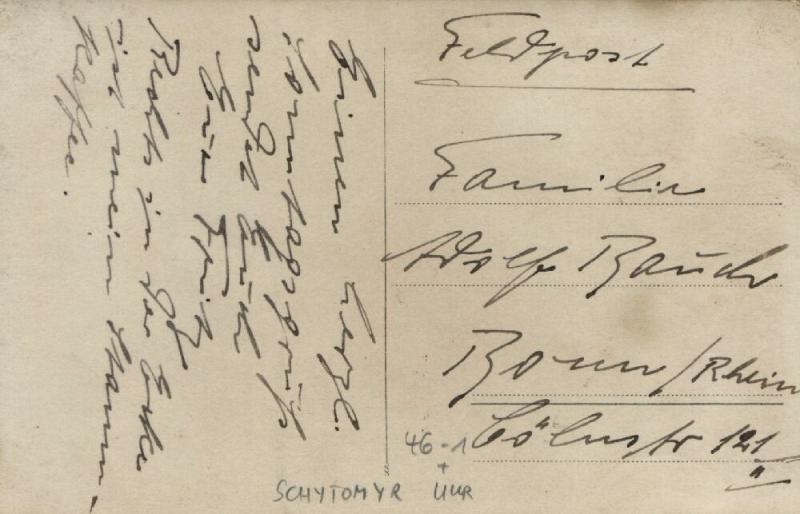 Einen herzl.
Sonntagsgruß
sendet Euch
Euer Fritz
Rechts in der Ecke
ist mein Stamm-
kaffee.
Feldpost
Familie
Adolf Rauch
Bonn/Rhein
Cölnstr 121
46-1
+
SCHYTOMYR UUR